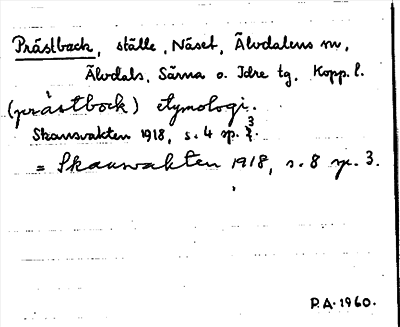 Prästback, ställe, Näset, Älvdalens sn,
Älvdals, Särna o. Idre tg, Kopp. l.
(prästbock) etymologi.
Skansvakten 1918, s. 4 sp. 3.
= Skansvakten 1918, s. 8 sp. 3.
P.A. 1960.